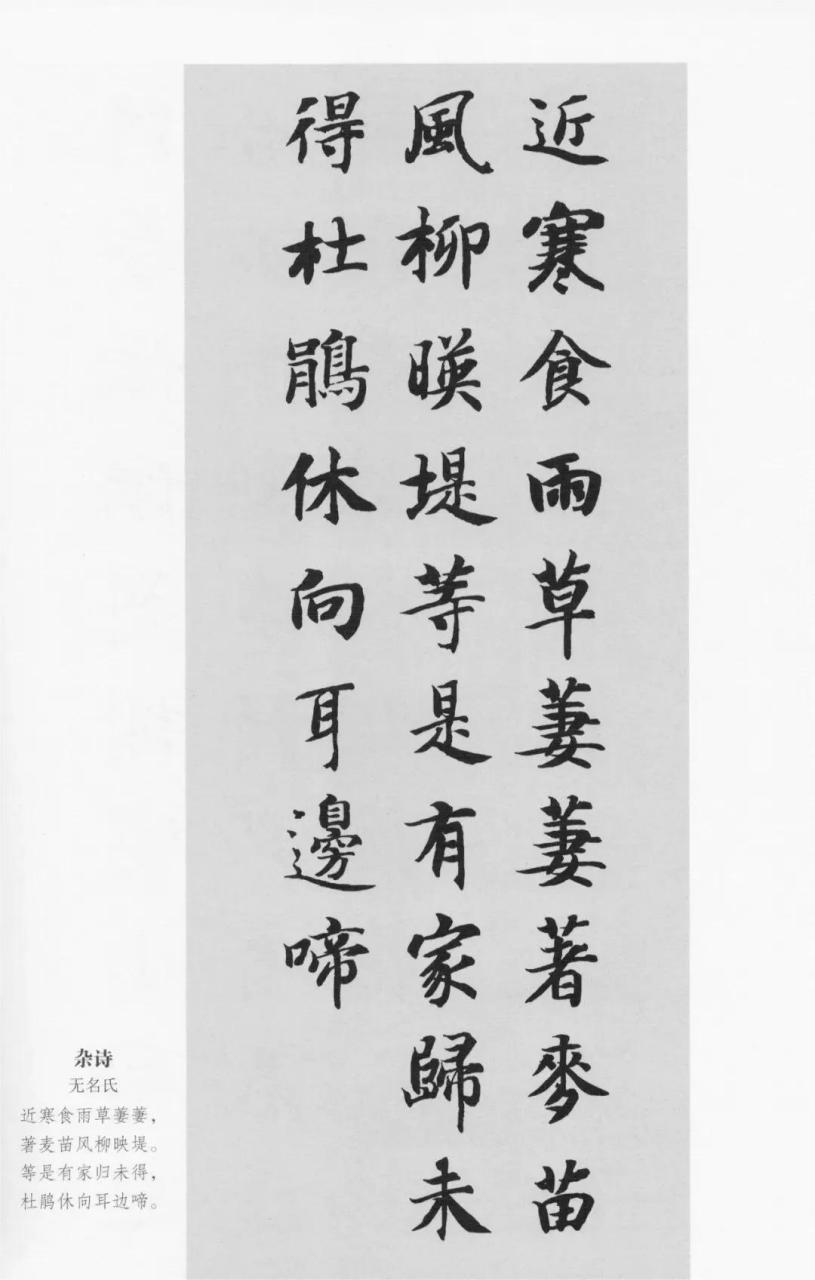 近寒食雨草萋萋著麥苗
風柳暎堤等是有家歸未
得杜鵑休向耳邊啼
杂诗
无名氏
近寒食雨草萋萋，
著麦苗风柳映堤。
等是有家归未得，
杜鹃休向耳边啼。